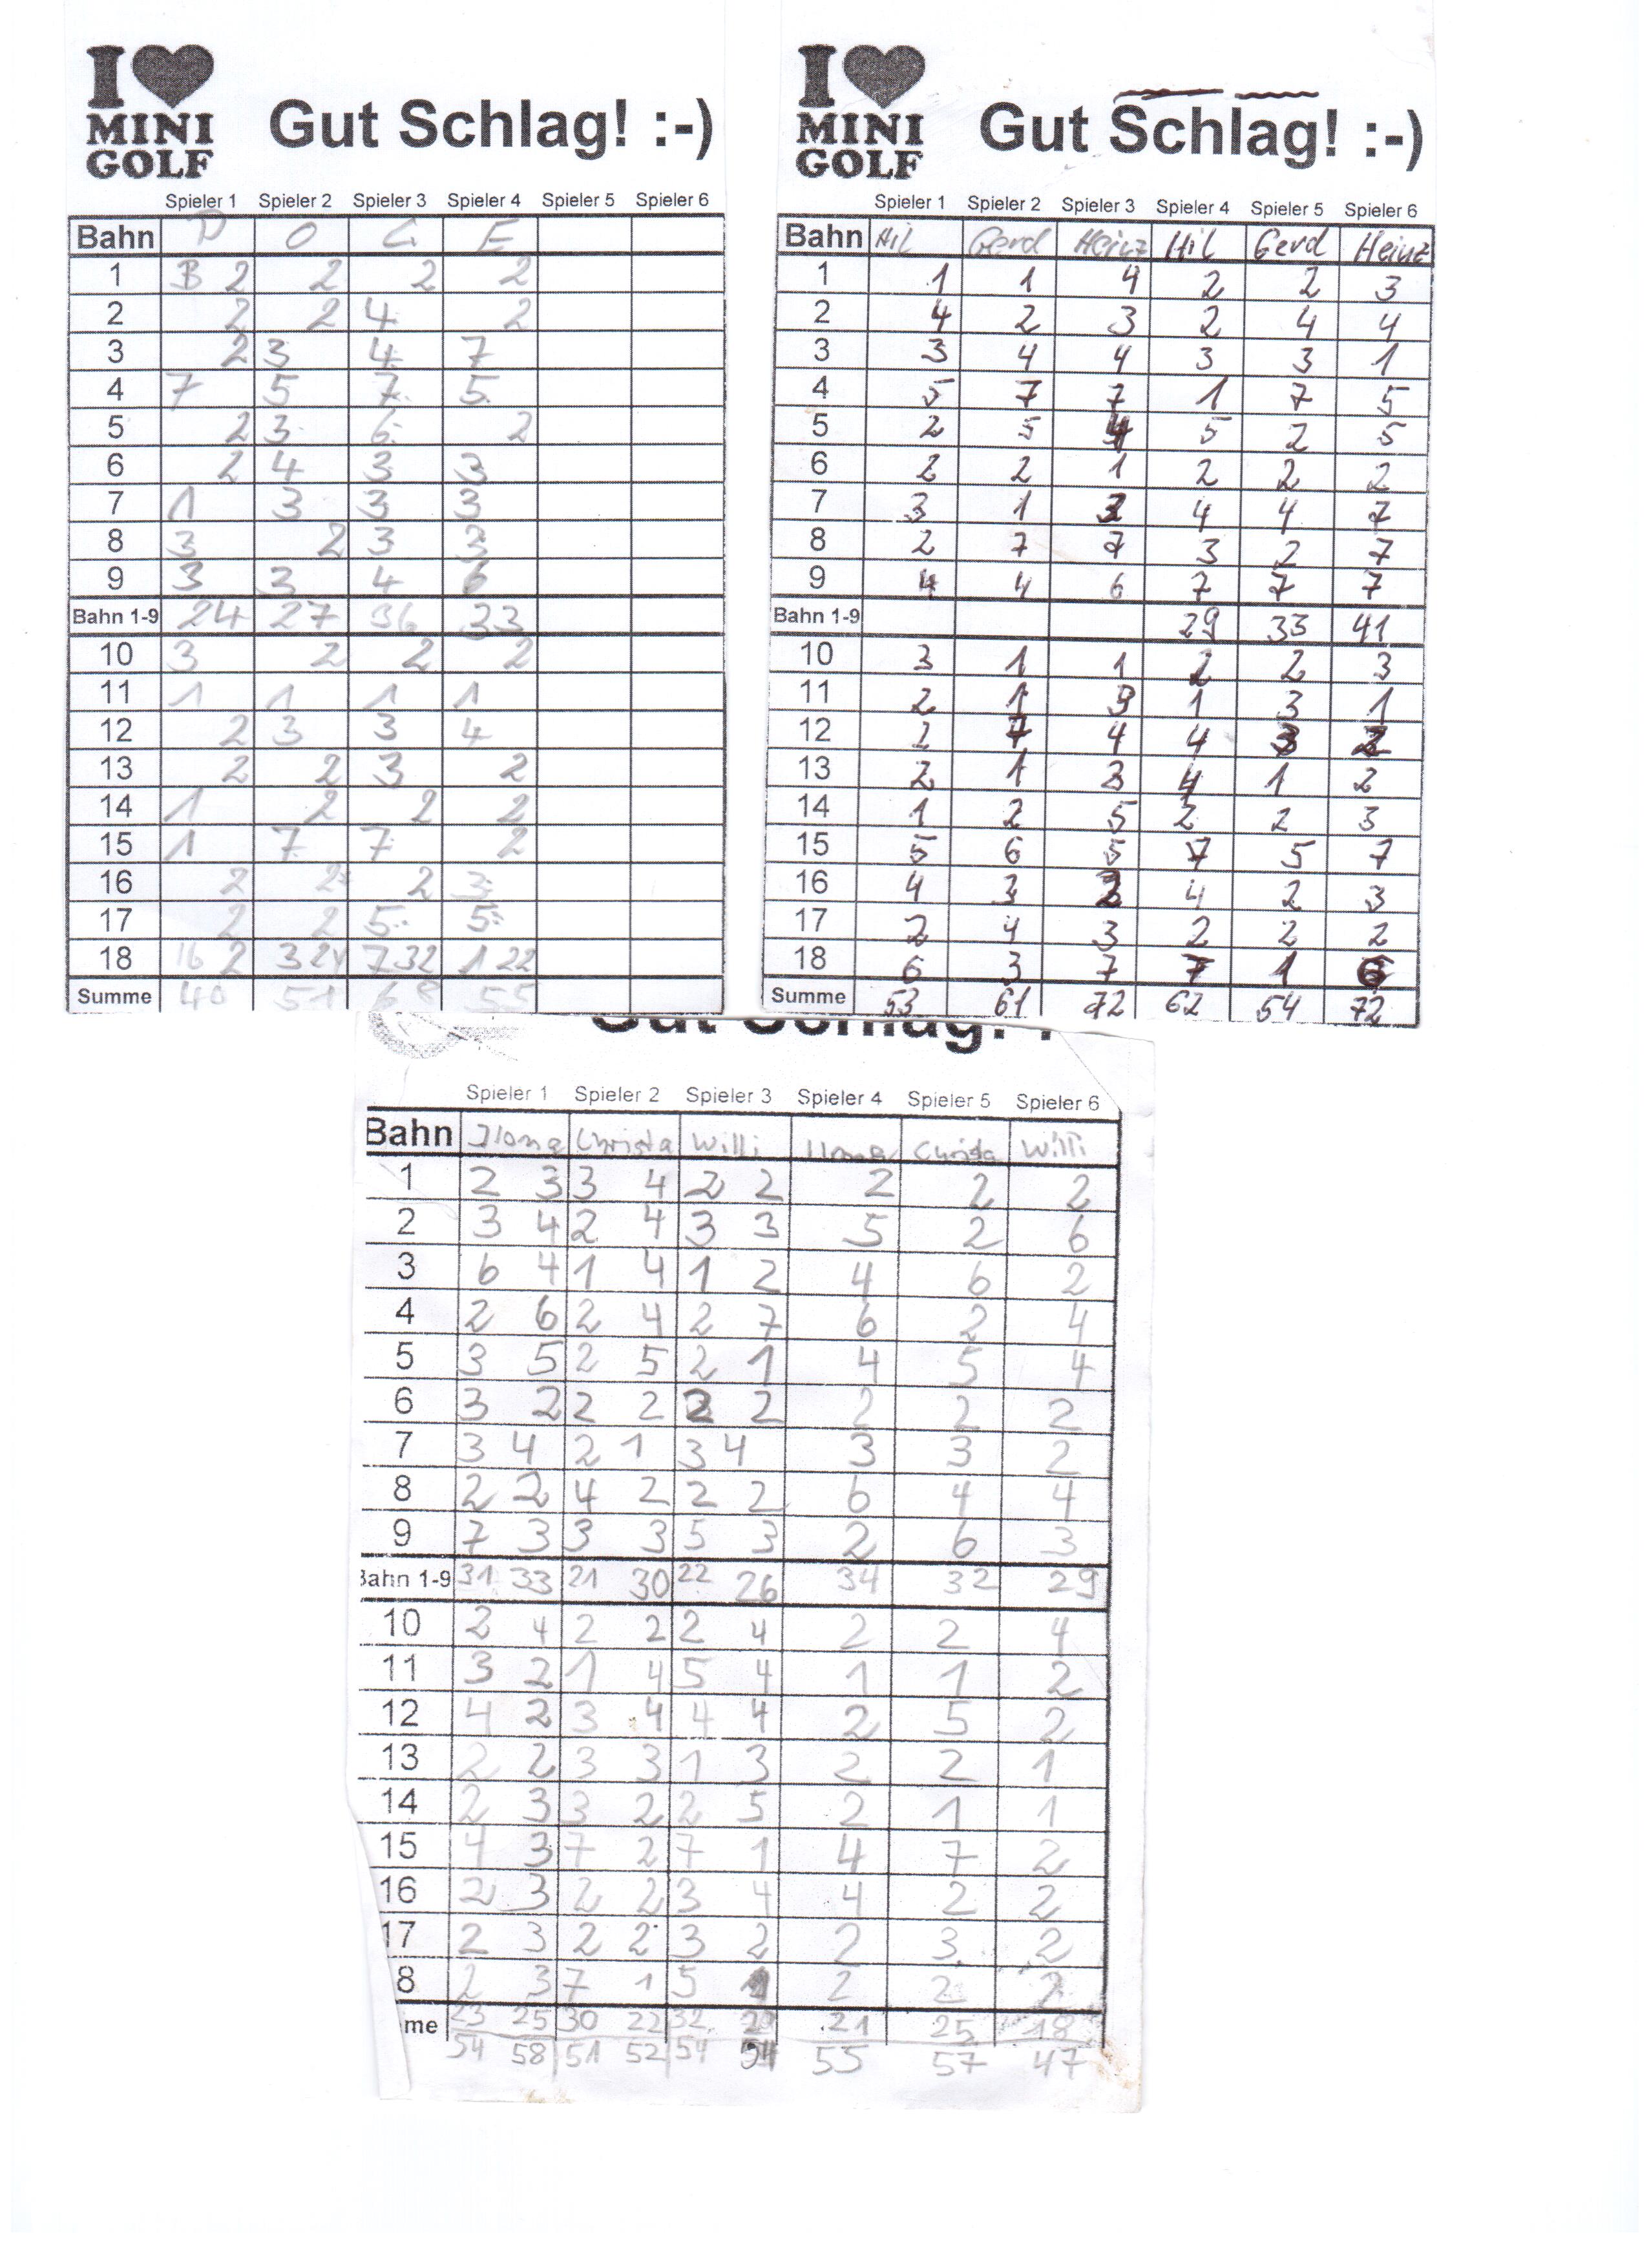 I ♥
MINI
GOLF
Gut Schlag! :-)
Spieler 1 Spieler 2 Spieler 3 Spieler 4 Spieler 5 Spieler 6
Bahn O G E
1 B 2 2 2 2
2 2 2 4 2
3 2 3 4 7
4 7 5 7 5
5 2 3 6 2
6 2 4 3 3
7 1 3 3 3
8 3 2 3 3
9 3 3 4 6
Bahn 1-9 24 27 36 33
10 3 2 2 2
11 1 1 1 1
12 2 3 3 4
13 2 2 3 2
14 1 2 2 2
15 1 7 7 2
16 2 2 2 3
17 2 2 5 5
18 16 2 3 24 7 32 1 22
Summe 40 51 68 55
I ♥
MINI
GOLF
Gut Schlag! :-)
Spieler 1 Spieler 2 Spieler 3 Spieler 4 Spieler 5 Spieler 6
Bahn Hil Gerd Heinz Hil Gerd Heinz
1 1 1 4 2 2 3
2 4 2 3 2 4 4
3 3 4 4 3 3 1
4 5 7 7 1 7 5
5 2 5 4 5 2 5
6 2 2 1 2 2 2
7 3 1 3 4 4 7
8 2 7 7 3 2 7
9 4 4 6 7 7 7
Bahn 1-9 29 33 41
10 3 1 1 2 2 3
11 2 1 3 1 3 1
12 2 7 4 4 3 2
13 2 1 3 4 1 2
14 1 2 5 2 2 3
15 5 6 5 7 5 7
16 4 3 2 4 2 3
17 2 4 3 2 2 2
18 6 3 7 7 1 6
Summe 53 61 72 62 54 72
Gut Schlag! :
Spieler 1 Spieler 2 Spieler 3 Spieler 4 Spieler 5 Spieler 6
Bahn Ilona Christa Willi Ilona Christa Willi
1 2 3 3 4 2 2 2 2 2
2 3 4 2 4 3 3 5 2 6
3 6 4 1 4 1 2 4 6 2
4 2 6 2 4 2 7 6 2 4
5 3 5 2 5 2 1 4 5 4
6 3 2 2 2 2 2 2 2 2
7 3 4 2 1 3 4 3 3 2
8 2 2 4 2 2 2 6 4 4
9 7 3 3 3 5 3 2 6 3
Bahn 1-9 31 33 21 30 22 26 34 32 29
10 2 4 2 2 2 4 2 2 4
11 3 2 1 4 5 4 1 1 2
12 4 2 3 4 4 4 2 5 2
13 2 2 3 3 1 3 2 2 1
14 2 3 3 2 2 5 2 1 1
15 4 3 7 2 7 1 4 7 2
16 2 3 2 2 3 4 4 2 2
17 2 3 2 2 3 2 2 3 2
8 2 3 7 1 5 1 2 2 2
me 23 25 30 22 32 28 21 25 18
54 58 51 52 54 54 55 57 47